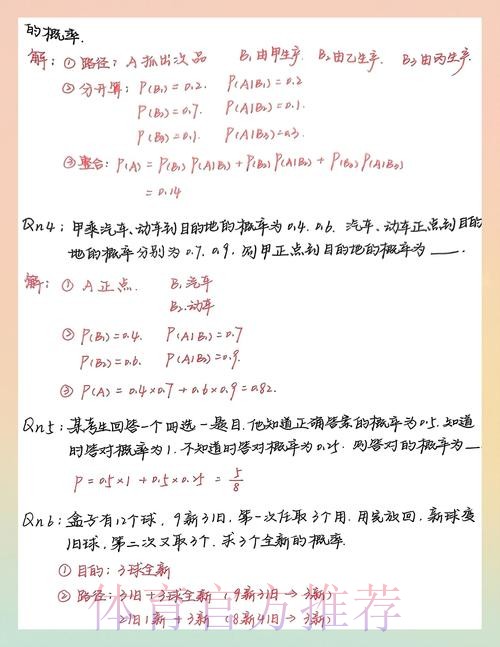 的概率.
解: ① 路径: A 抓出次品 B₁ 由甲生产. B₂ 由乙生产. B₃ 由丙生产.
② 分开算: P(B₁) = 0.2. P(A|B₁) = 0.2
P(B₂) = 0.7. P(A|B₂) = 0.1.
P(B₃) = 0.1. P(A|B₃) = 0.3.
③ 整合: P(A) = P(B₁) P(A|B₁) + P(B₂) P(A|B₂) + P(B₃) P(A|B₃)
= 0.14
Qn4: 甲乘汽车、动车到目的地的概率为 0.4. 0.6. 汽车、动车正点到目的
地的概率分别为 0.7. 0.9. 则甲正点到目的地的概率为 ___.
解: ① A 正点. B₁ 汽车
B₂ 动车
② P(B₁) = 0.4. P(A|B₁) = 0.7
P(B₂) = 0.6. P(A|B₂) = 0.9.
③ P(A) = 0.4×0.7 + 0.6×0.9 = 0.82.
Qn5: 某考生回答一个四选一题目. 他知道正确答案的概率为 0.5. 知道
时答对概率为 1. 不知道时答对概率为 0.25. 则答对的概率为 __
P = 0.5×1 + 0.5×0.25 = 5/8
Qn6: 盒子有12个球, 9新3旧, 第一次任取3个用. 用完放回. 新球变
旧球. 第二次又取3个. 求3个全新的概率.
① 目的: 3球全新
② 路径: 3旧 + 3球全新 (9新3旧 → 3新)
2旧1新 + 3新 (8新4旧 → 3新)
体育官方推荐